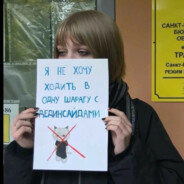 Я НЕ ХОЧУ
ХОДИТЬ В
ОДНУ ШАРАГУ С
ДЕДИНСАЙДАМИ
САНКТ-
БЮ
ОБ
ТРА
Санкт-
РЕЖИМ